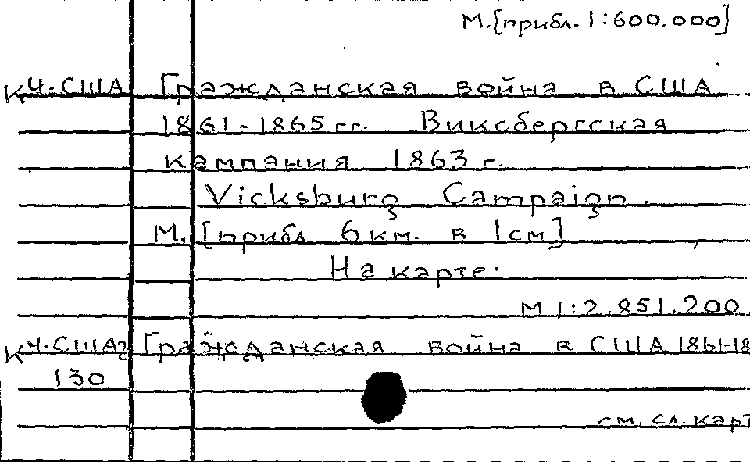 М.[прибл. 1:600.000]
КЧ-США Гражданская война в США
1861-1865 гг. Виксбергская
кампания 1863 г.
Vicksburg Campaign.
М. [прибл 6 км. в 1 см]
На карте:
М 1:2.851.200
КЧ-США2 Гражданская война в США 1861-18
130
см. сл. карт